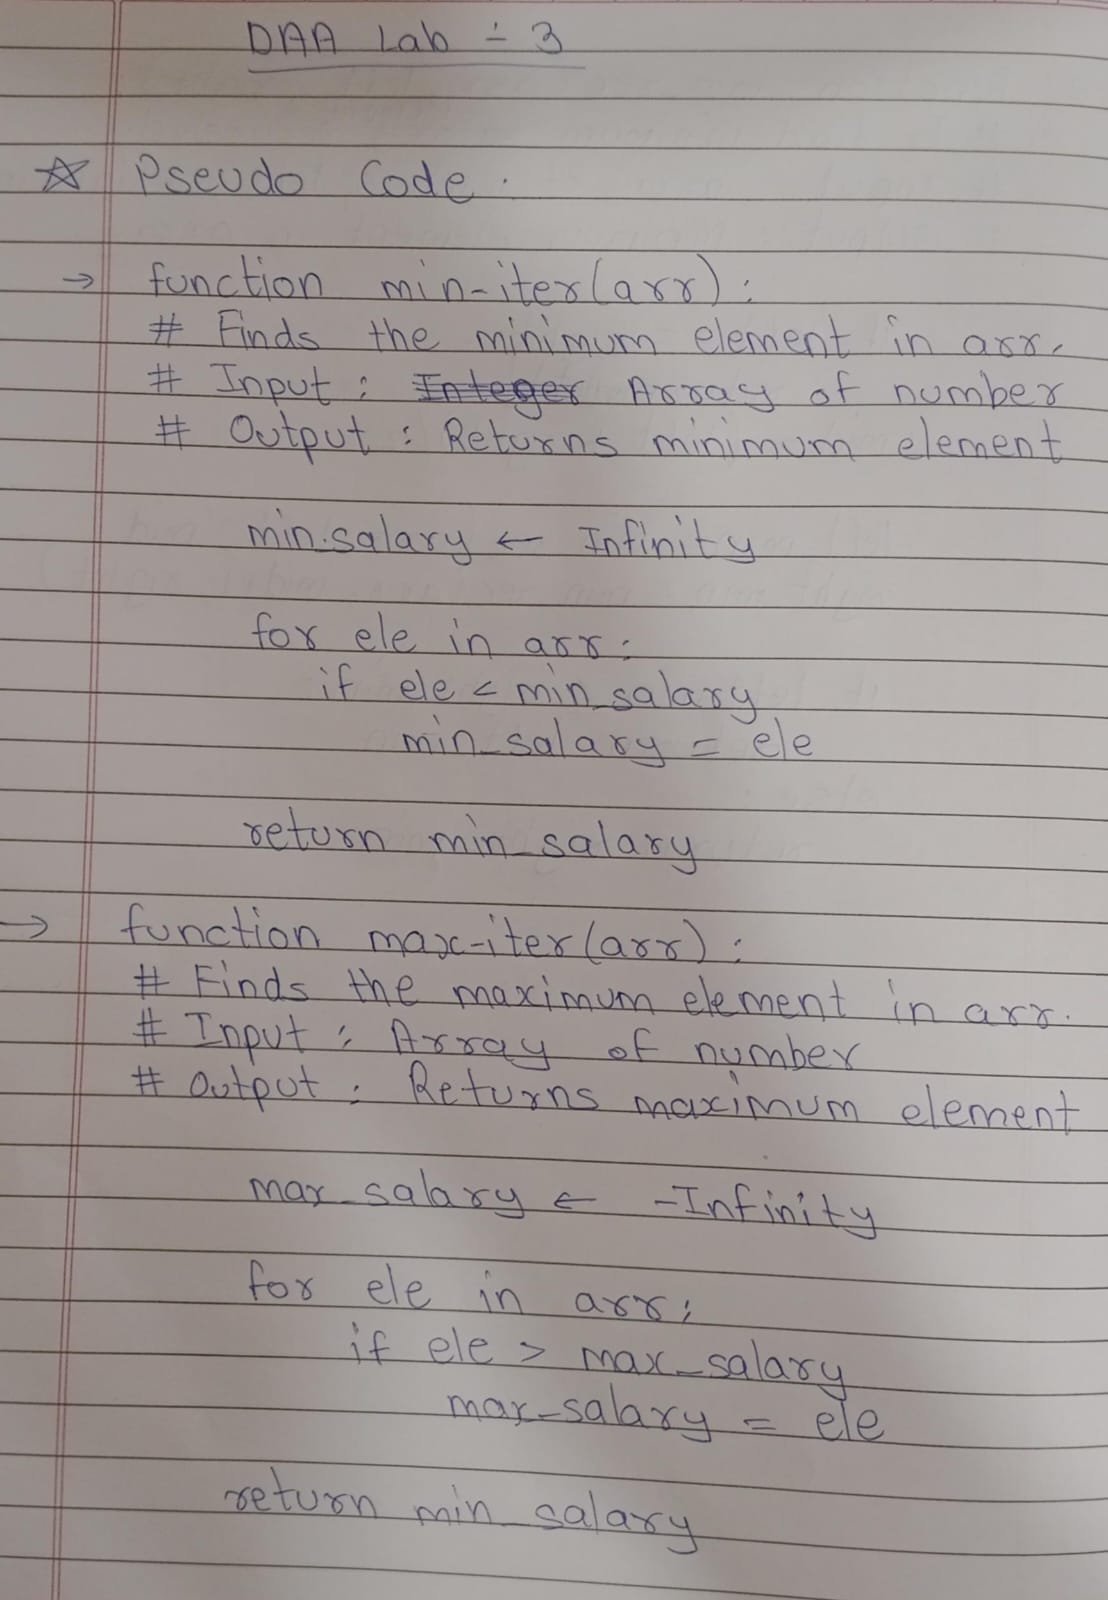 DAA Lab - 3
☆ Pseudo Code :
→ function min-iter(arr) :
# Finds the minimum element in arr.
# Input : Integer Array of number
# Output : Returns minimum element
min_salary ← Infinity
for ele in arr :
if ele < min_salary
min_salary = ele
return min_salary
→ function max-iter(arr) :
# Finds the maximum element in arr.
# Input : Array of number
# Output : Returns maximum element
max_salary ← -Infinity
for ele in arr :
if ele > max_salary
max_salary = ele
return min_salary